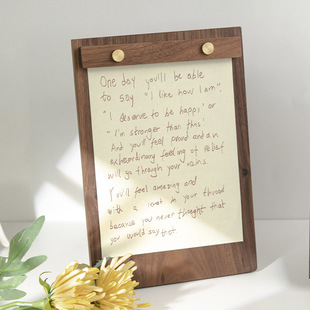 One day you'll be able
to say "I like how I am",
"I deserve to be happy" or
"I'm stronger than this"
And you'll feel proud and an
extraordinary feeling of relief
will go through your veins.
You'll feel amazing and
with a knot in your throat
because you never thought that
you would say that.